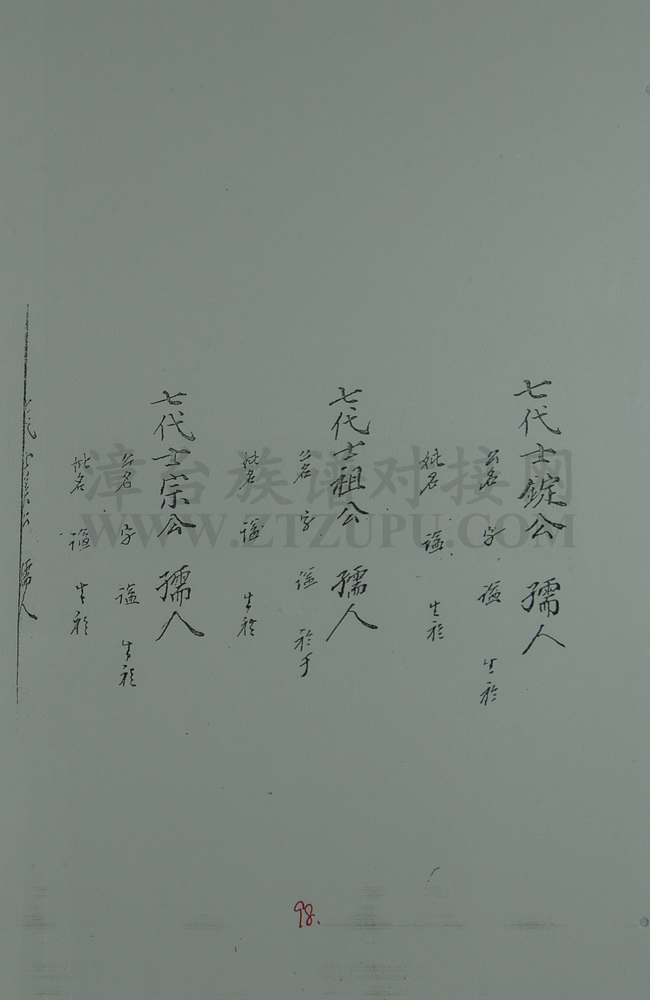 七代士錠公 孺人
公名 字 謚 生於
妣名 謚 生於
七代士祖公 孺人
公名 字 謚 於于
妣名 謚 生於
七代士宗公 孺人
公名 字 謚 生於
妣名 謚 生於
孺人
漳台族谱对接网
WWW.ZTZUPU.COM
98.